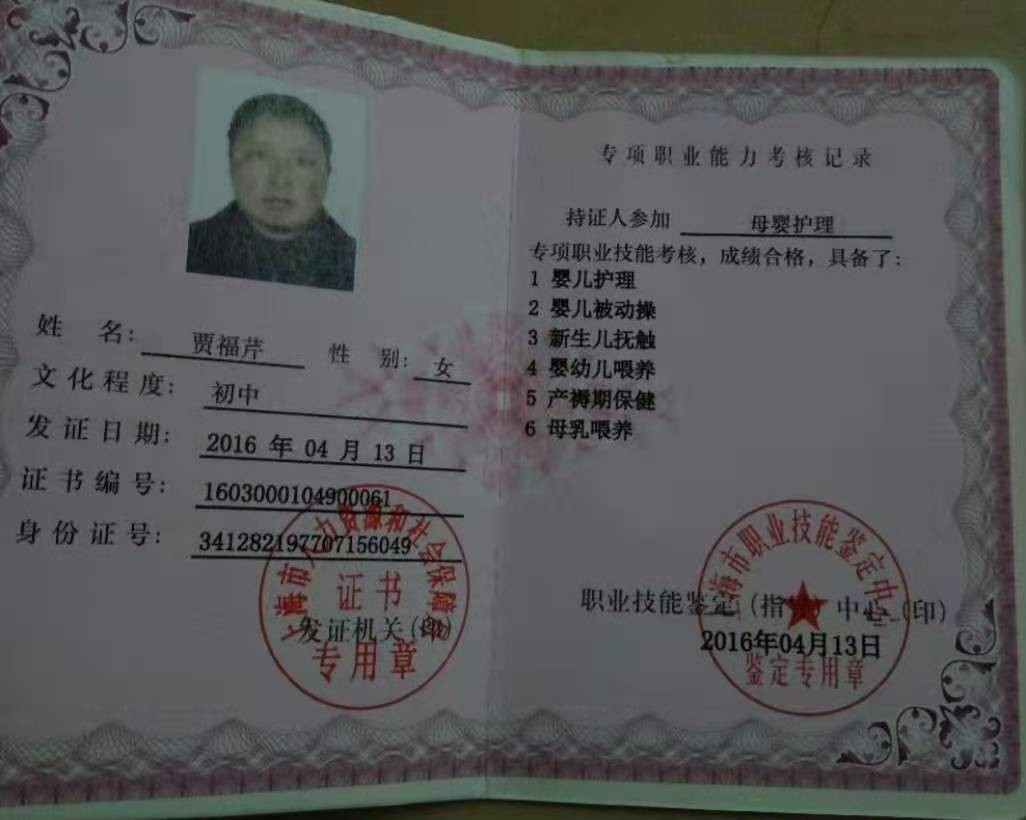 姓 名: 贾福芹 性 别: 女
文化程度: 初中
发证日期: 2016 年 04 月 13 日
证书编号: 1603000104900061
身份证号: 341282197707156049
上海市人力资源和社会保障
证书
发证机关(印)
专用章
专项职业能力考核记录
持证人参加 母婴护理
专项职业技能考核,成绩合格,具备了:
1 婴儿护理
2 婴儿被动操
3 新生儿抚触
4 婴幼儿喂养
5 产褥期保健
6 母乳喂养
海市职业技能鉴定中
职业技能鉴定(指导)中心(印)
2016年04月13日
鉴定专用章